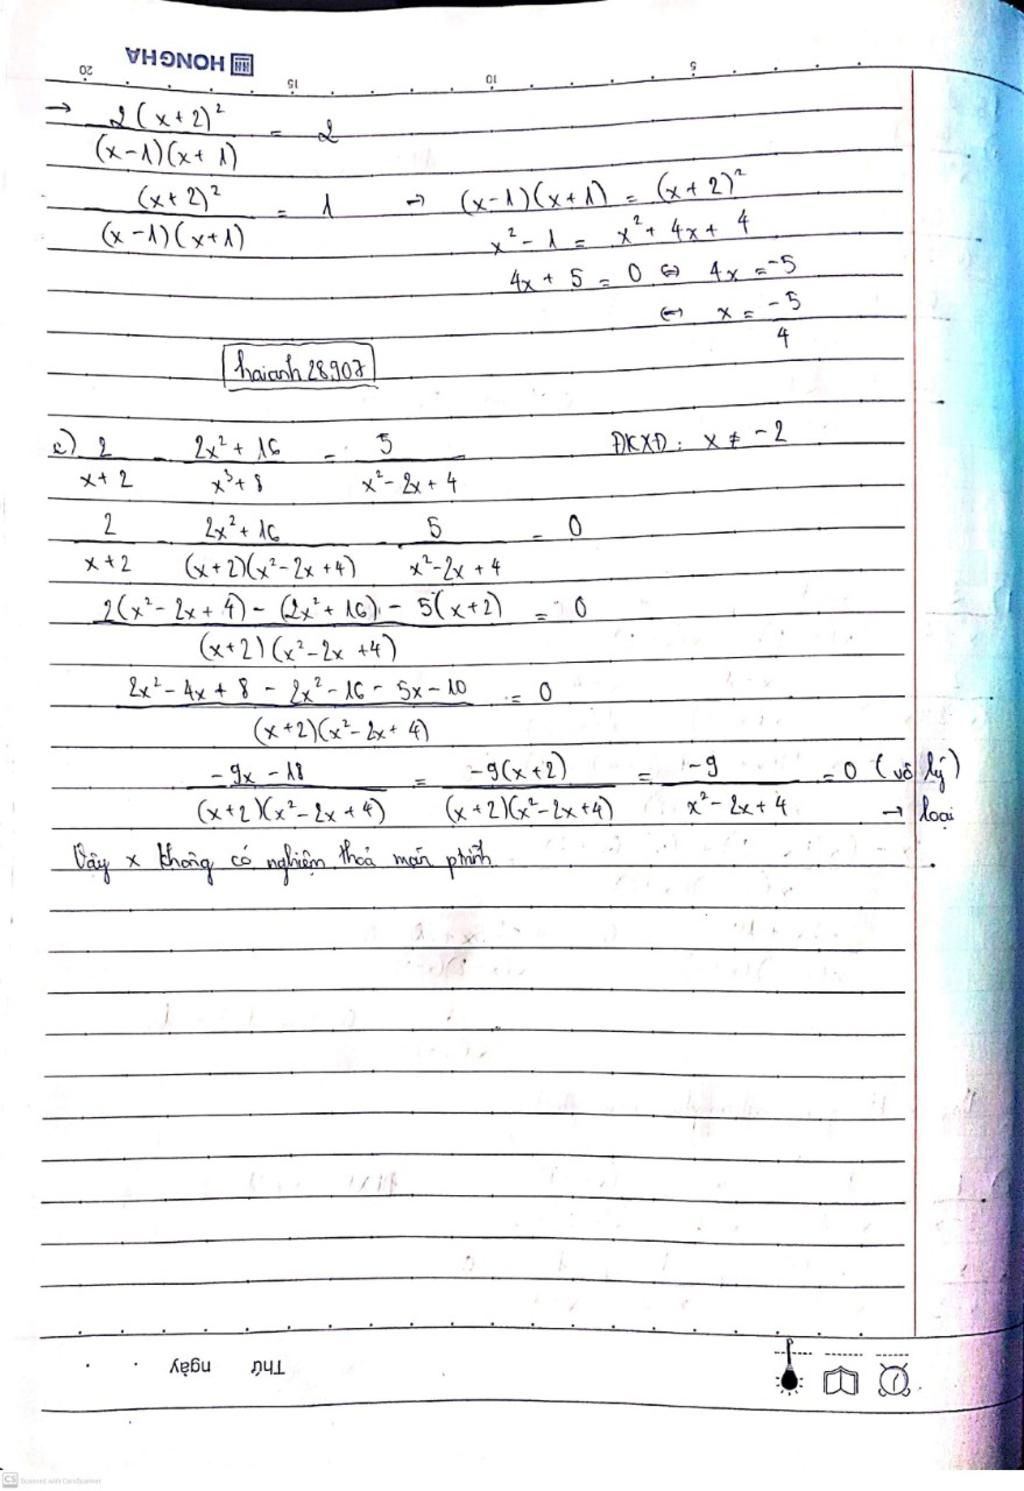 HONG HA
20 15 10 5
→ 2(x+2)² / (x-1)(x+1) = 2
(x+2)² / (x-1)(x+1) = 1 → (x-1)(x+1) = (x+2)²
x² - 1 = x² + 4x + 4
4x + 5 = 0 ⇔ 4x = -5
⇔ x = -5/4
haianh28907
c) 2/(x+2) - (2x²+16)/(x³+8) = 5/(x²-2x+4) ĐKXĐ: x ≠ -2
2/(x+2) - (2x²+16)/((x+2)(x²-2x+4)) - 5/(x²-2x+4) = 0
(2(x²-2x+4) - (2x²+16) - 5(x+2)) / ((x+2)(x²-2x+4)) = 0
(2x²-4x+8-2x²-16-5x-10) / ((x+2)(x²-2x+4)) = 0
(-9x-18)/((x+2)(x²-2x+4)) = -9(x+2)/((x+2)(x²-2x+4)) = -9/(x²-2x+4) = 0 (vô lý)
→ loại
Vậy x không có nghiệm thoả mãn ptrình
Thứ ngày
CS Scanned with CamScanner